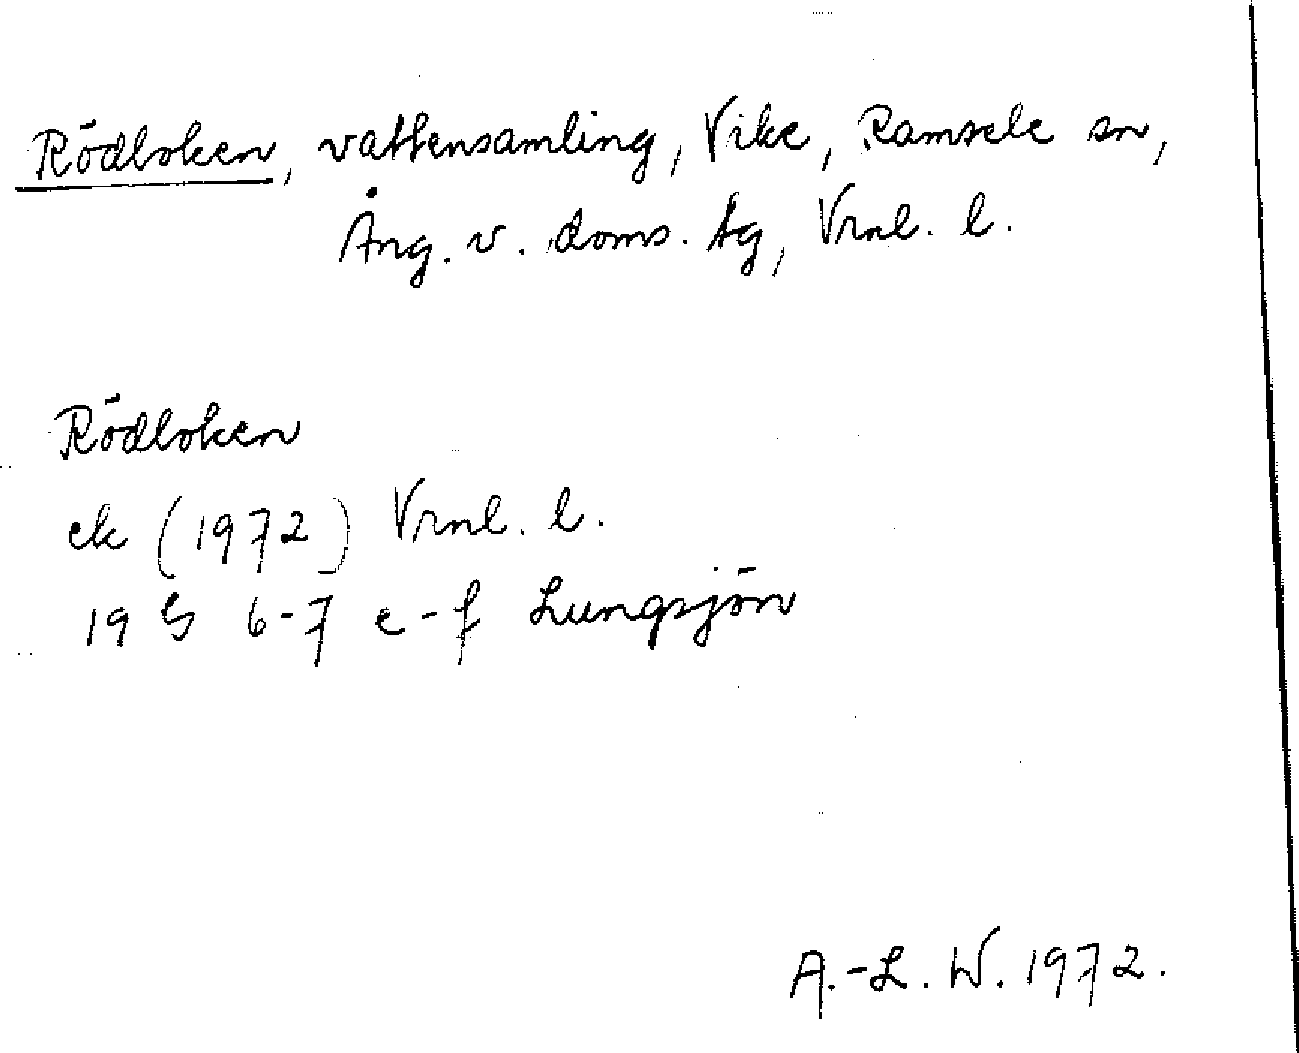 Rödloken, vattensamling, Vike, Ramsele sn,
Ång. v. doms. tg, Vrnl. l.
Rödloken
ek (1972) Vrnl. l.
19 G 6-7 e-f Lungsjön
A.-L. W. 1972.